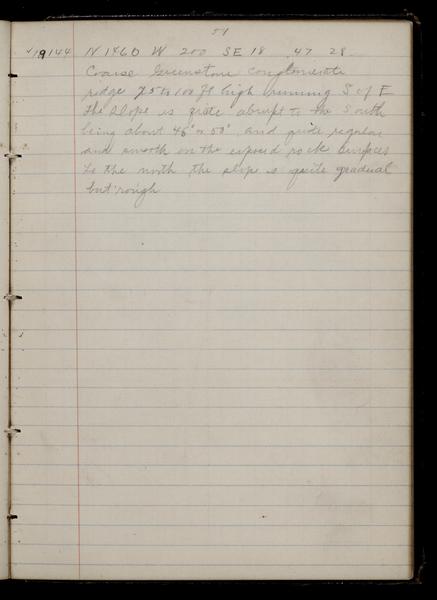 51
✓19144 N 1460 W 200 SE 18 47 28
Coarse Greenstone conglomerate
ridge 75 to 100 ft high running S of E
the slope is quite abrupt to the South
being about 45° or 50° and quite regular
and smooth on the exposed rock surfaces
to the north the slope is quite gradual
but rough